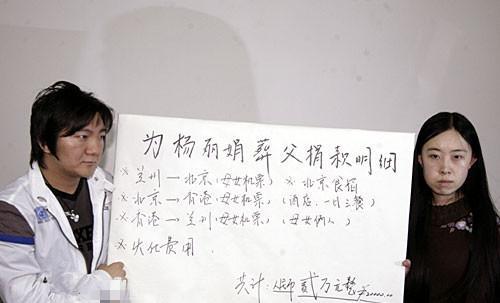 为杨丽娟葬父捐款明细
※ 兰州 → 北京(母女机票) ※ 北京食宿
※ 北京 → 香港(母女机票)(酒店、一日三餐)
※ 香港 → 兰州(母女机票)(母女俩人)
※ 火化费用
共计:人民币贰万元整